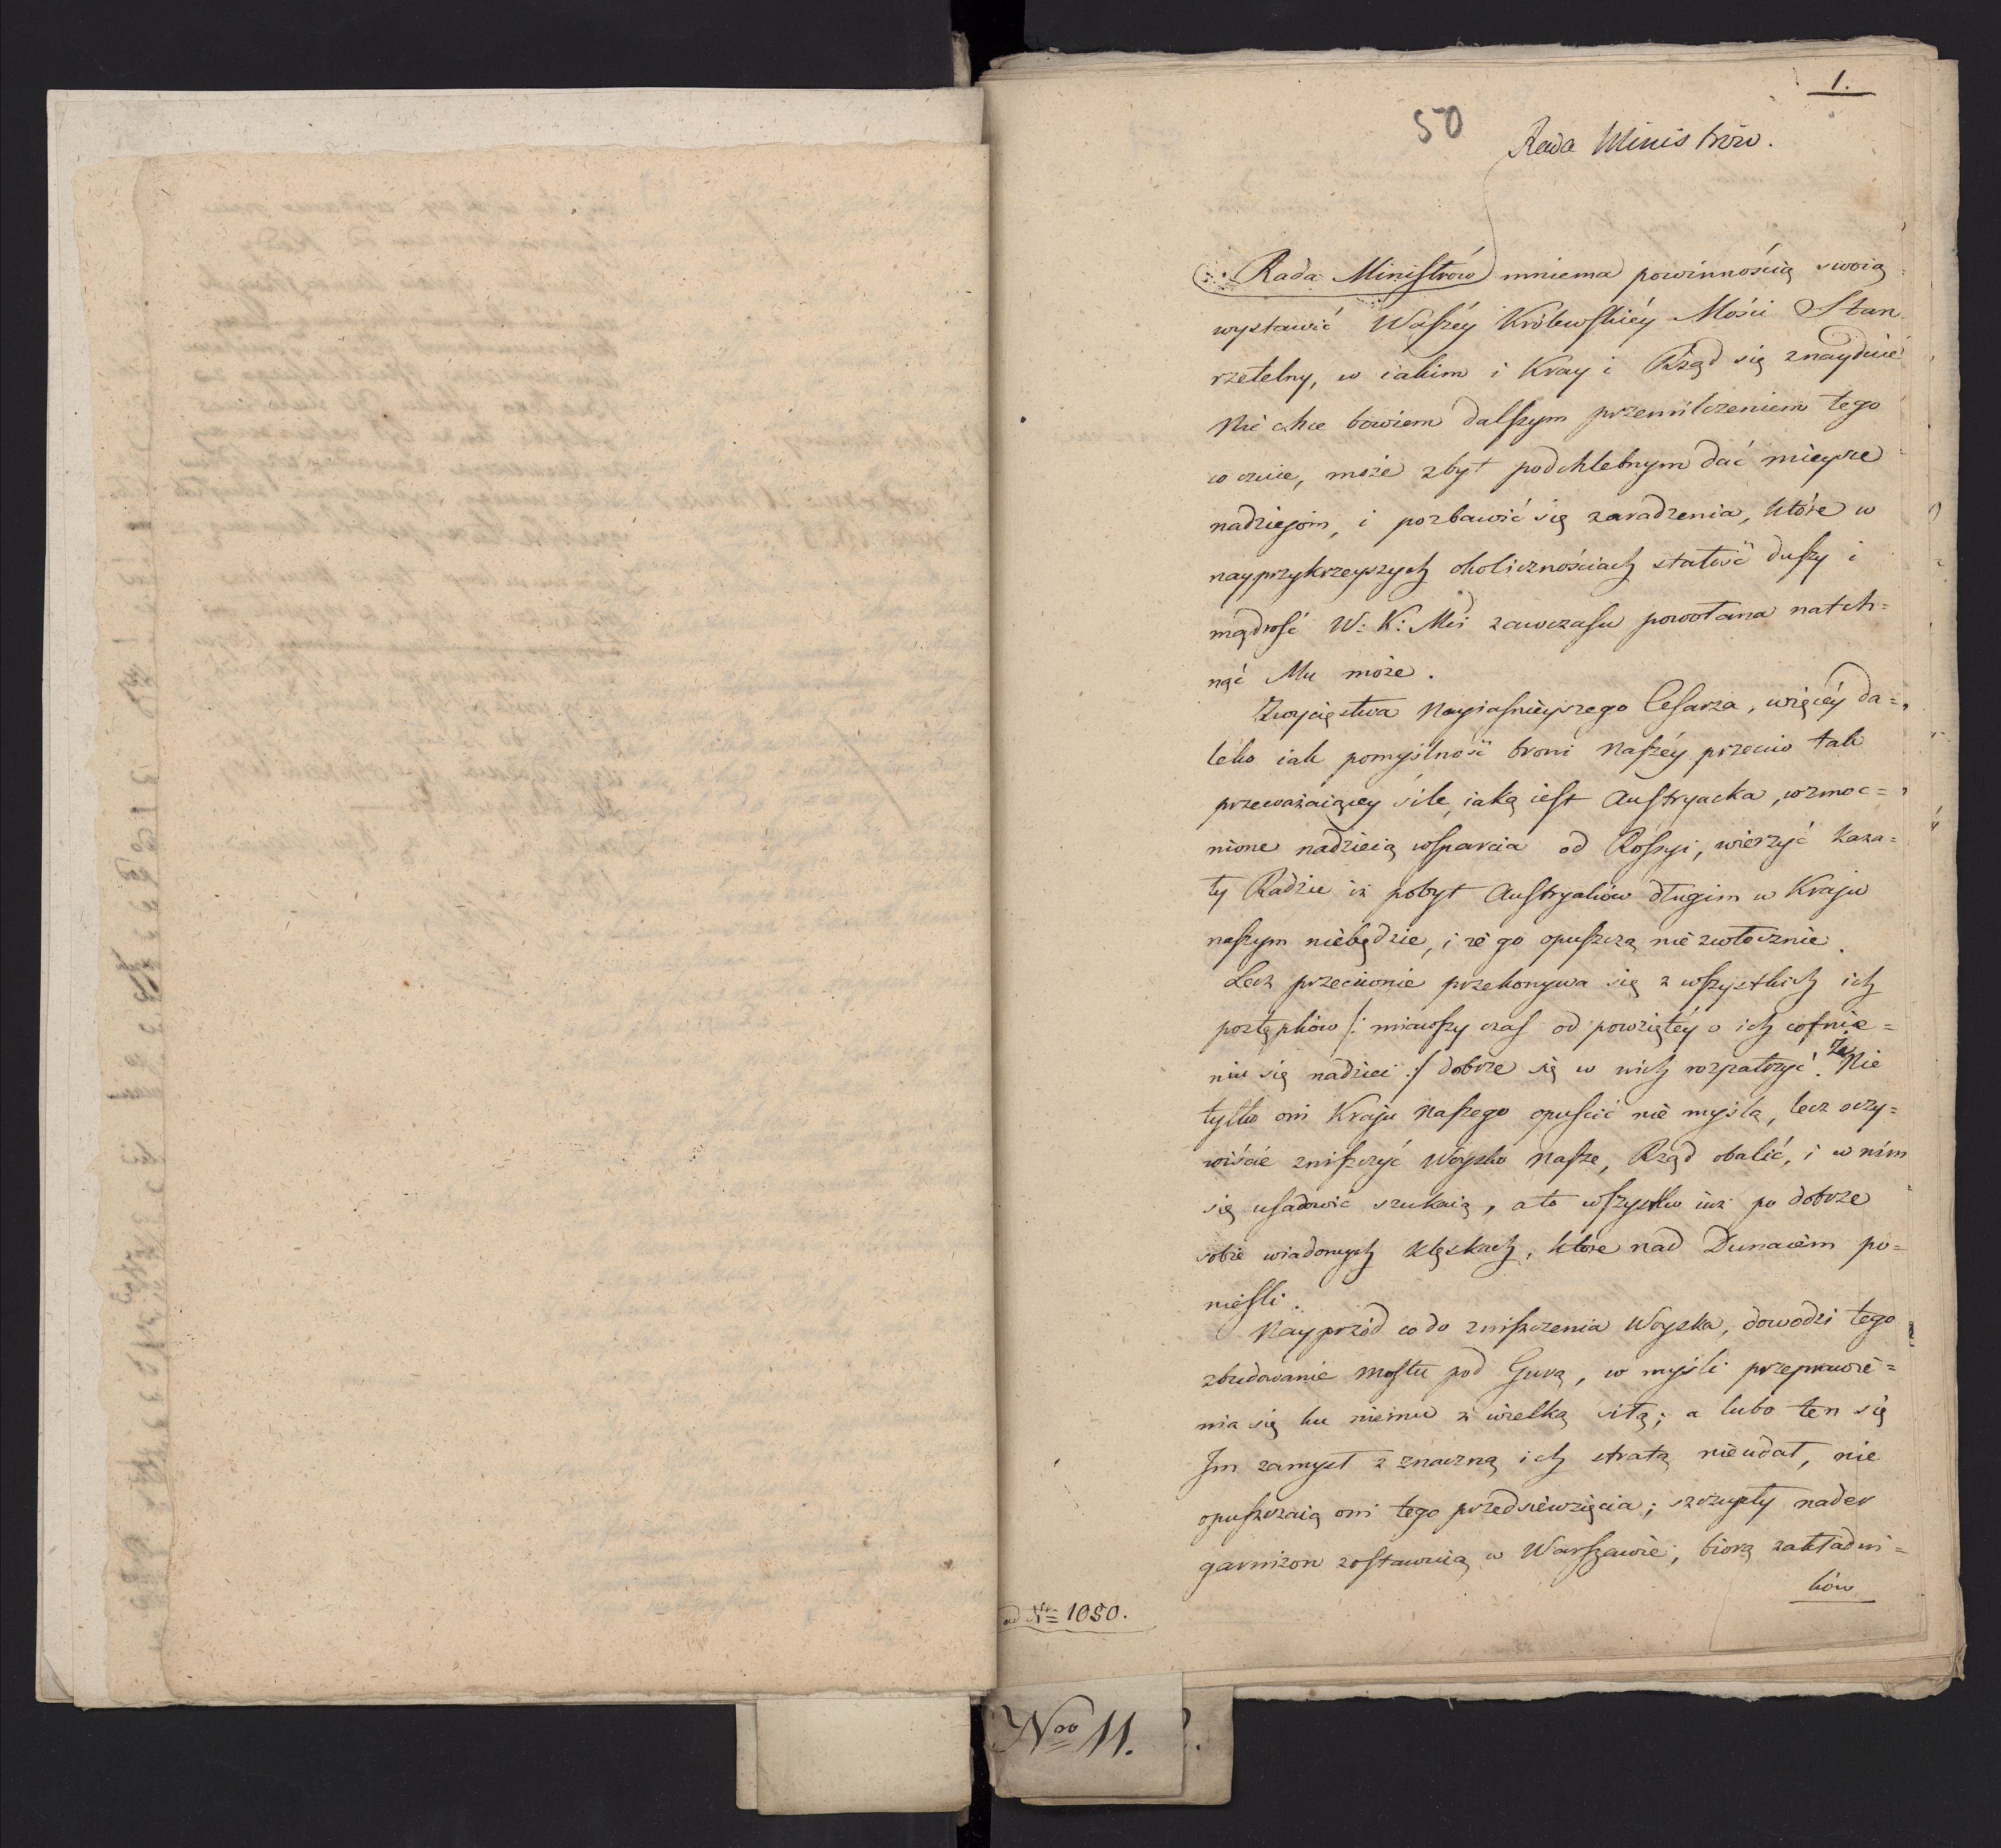 1.
50
Rada Ministrów.
Rada Ministrów mniema powinnością swoią
wystawić Waszéy Królewskiéy Mości Stan
rzetelny, w iakim i Kray i Rząd się znayduie
Nie chce bowiem dalszym przemilczeniem tego
co czuie, może zbyt podchlebnym dać mieysce
nadziejom, i pozbawić się zaradzenia, które w
nayprzykrzeyszych okolicznościach stałość duszy i
mądrość W: K: Mci zawczasu powołana natch=
nąć Mu może.
Zwycięstwa Nayiaśnieyszego Cesarza, więcéy da=
leko iak pomyślność broni Naszéy przeciw tak
przeważaiącey sile, iaką iest Austryacka, wzmoc=
nione nadzieią wsparcia od Rossyi, wierzyć kaza=
ły Radzie iż pobyt Austryaków długim w Kraju
naszym niebędzie, i że go opuszczą nie zwłocznie.
Lecz przeciwnie przekonywa się z wszystkich ich
postępków /: miawszy czas od powziętéy o ich cofnie=
niu się nadziei :/ dobrze się w nich rozpatrzyć. Że Nie
tylko oni Kraju Naszego opuścić nie myślą, lecz oczy=
wiście zniszczyć Woysko Nasze, Rząd obalić, i w nim
się usadowić szukaią, a to wszystko iuż po dobrze
sobie wiadomych klęskach, które nad Dunaiem po=
nieśli.
Nayprzód co do zniszczenia Woyska, dowodzi tego
zbudowanie Mostu pod Gurą, w myśli przeprawie=
nia się ku niemu z wielką siłą; a lubo ten się
Im zamysł z znaczną ich stratą nieudał, nie
opuszczaią oni tego przedsiewzięcia; szczupły nader
garnizon zostawuią w Warszawie, biorą zakładni=
ków
ad Nr 1050.
Nro 11.